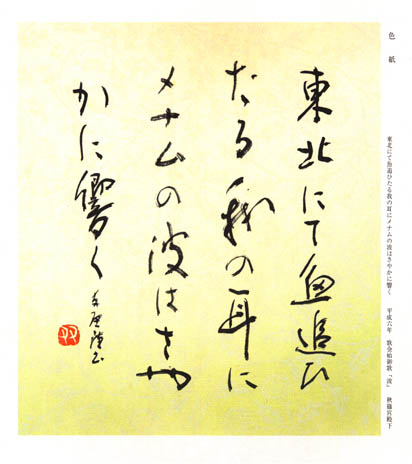 色紙
東北にて魚追ひたる我の耳にメナムの波はさやかに響く　平成六年　歌会始御歌「波」　秋篠宮殿下
東北にて魚追ひ
たる我の耳に
メナムの波はさや
かに響く